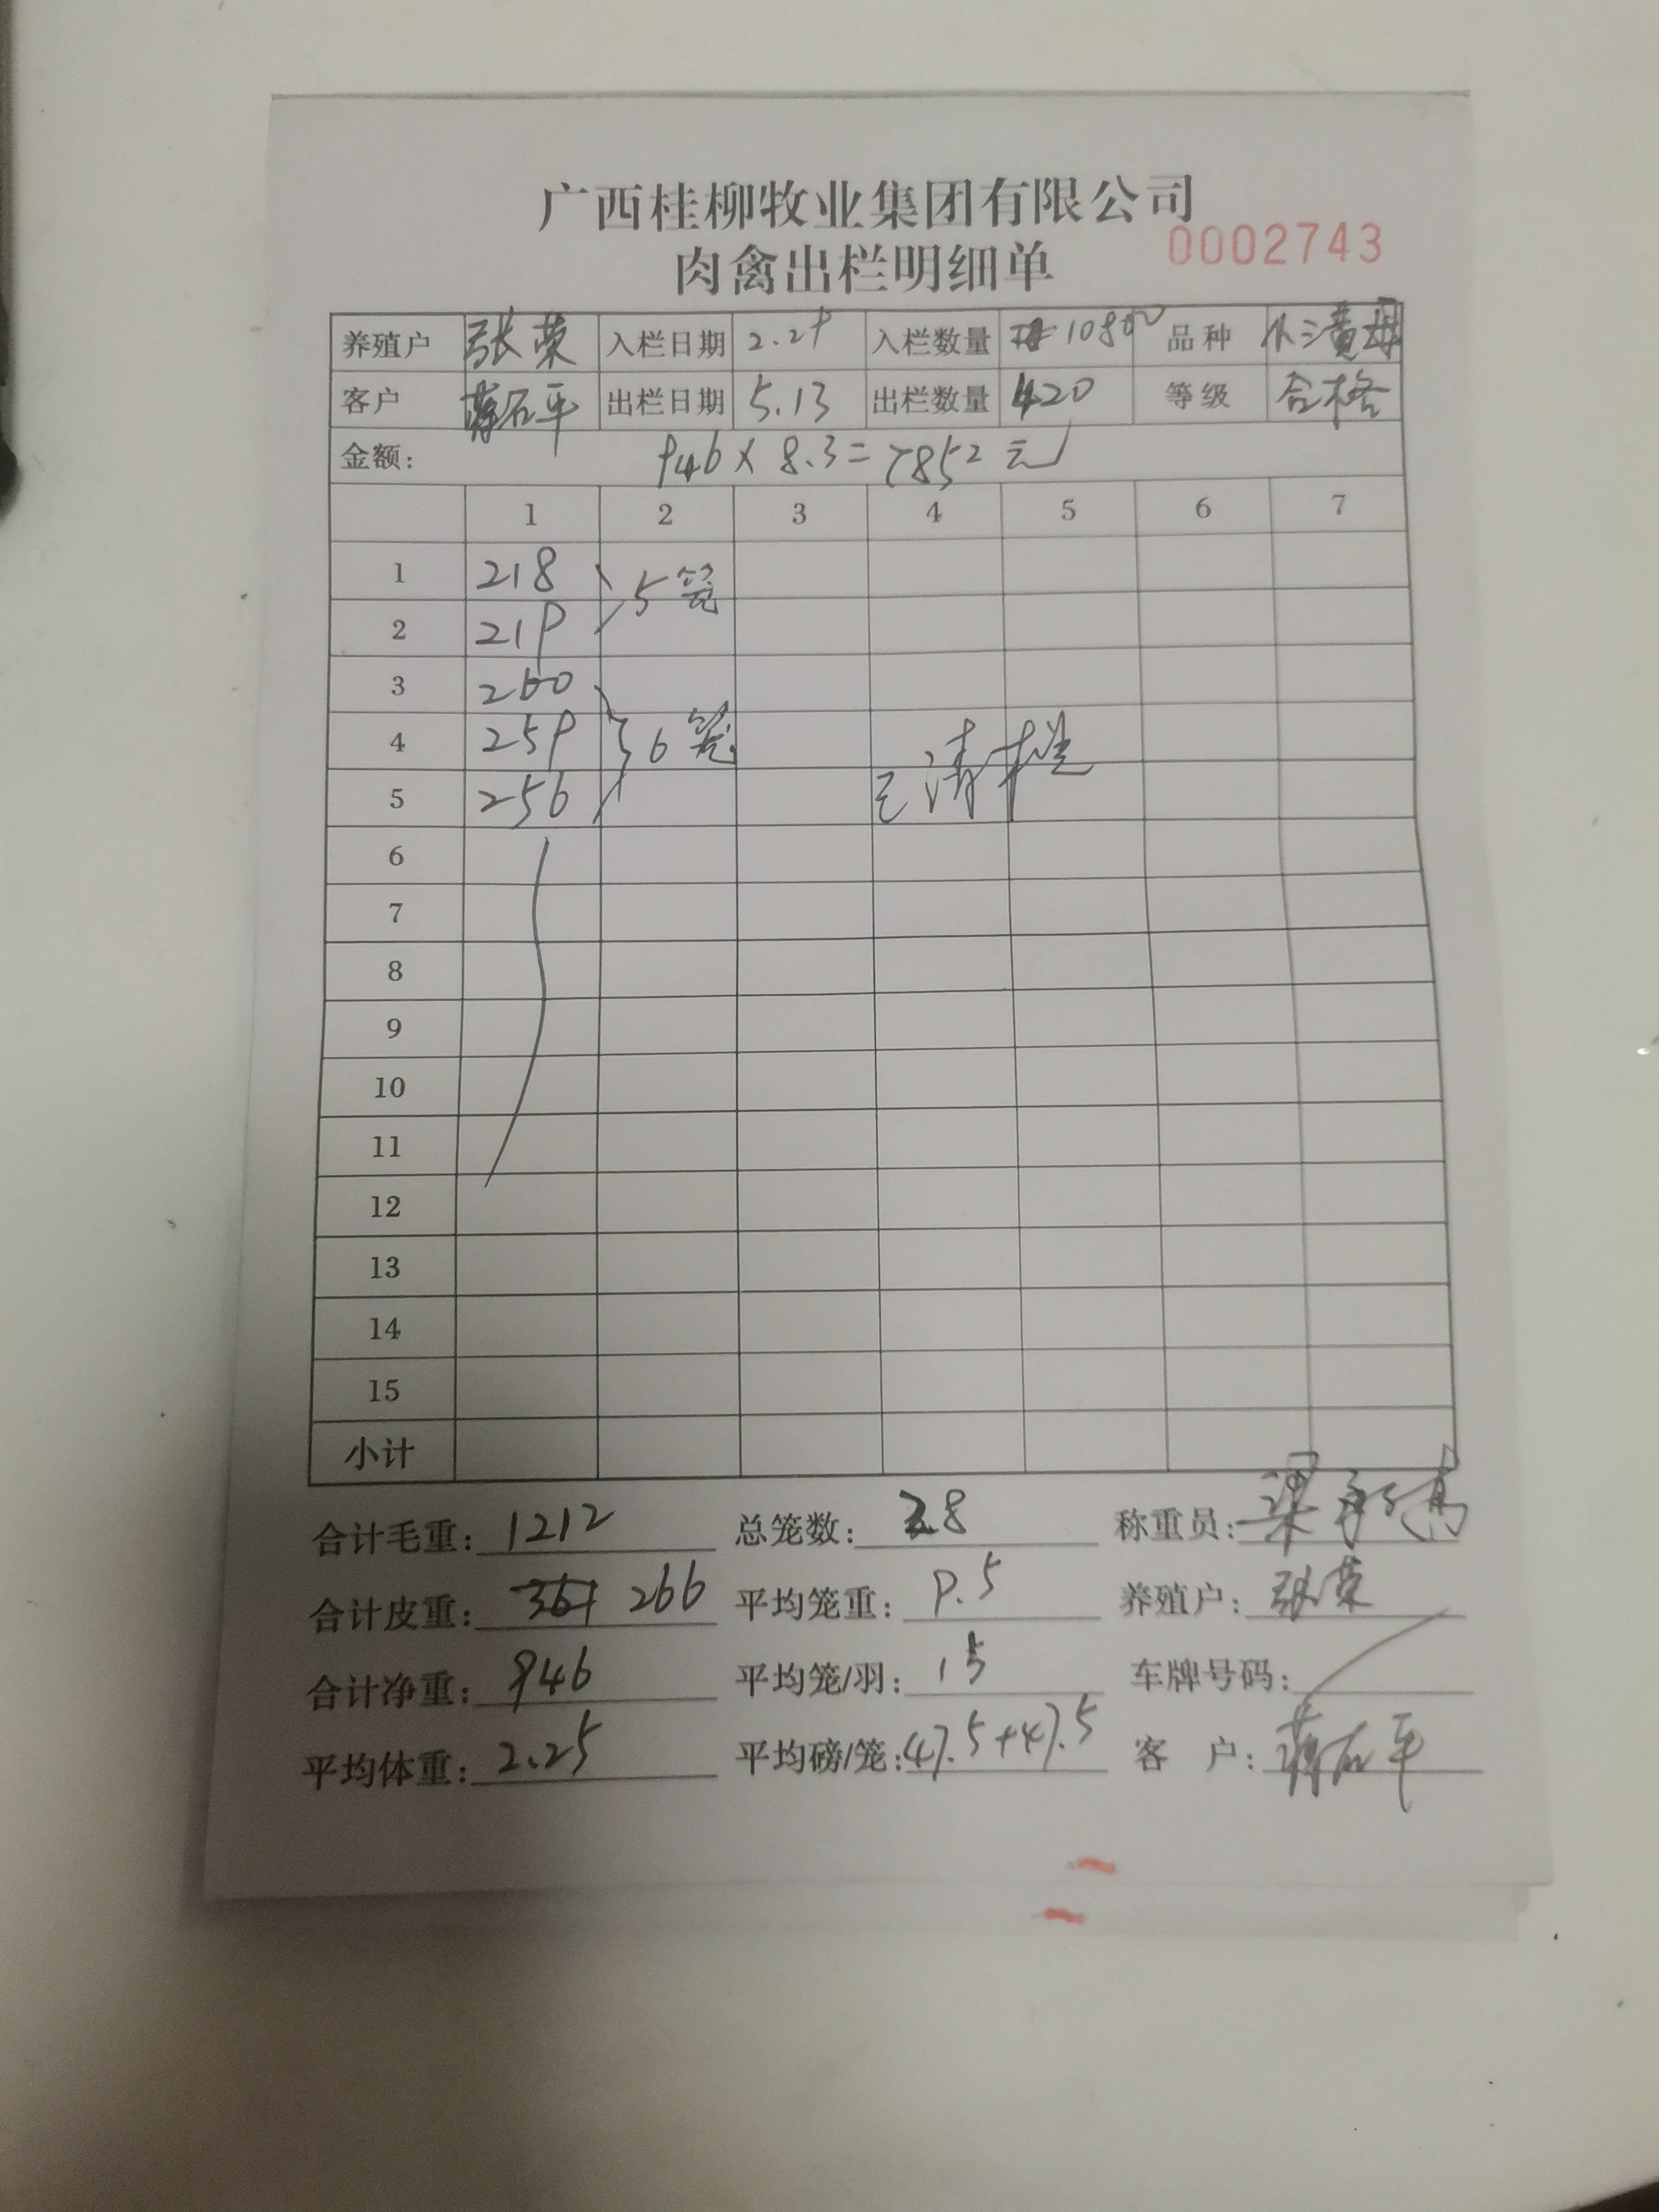 广西桂柳牧业集团有限公司
肉禽出栏明细单
0002743
养殖户 张荣 入栏日期 2.29 入栏数量 10800 品种
客户 蒋石平 出栏日期 5.13 出栏数量 420 等级 合格
金额: 946 x 8.3 = 7852 元
1 2 3 4 5 6 7
1 218 5笼
2 219
3 260
4 259 6笼
5 256 已清栏
6
7
8
9
10
11
12
13
14
15
小计
合计毛重: 1212 总笼数: 28 称重员:
合计皮重: 361 266 平均笼重: 9.5 养殖户: 张荣
合计净重: 946 平均笼/羽: 15 车牌号码:
平均体重: 2.25 平均磅/笼: 47.5+47.5 客户: 蒋石平